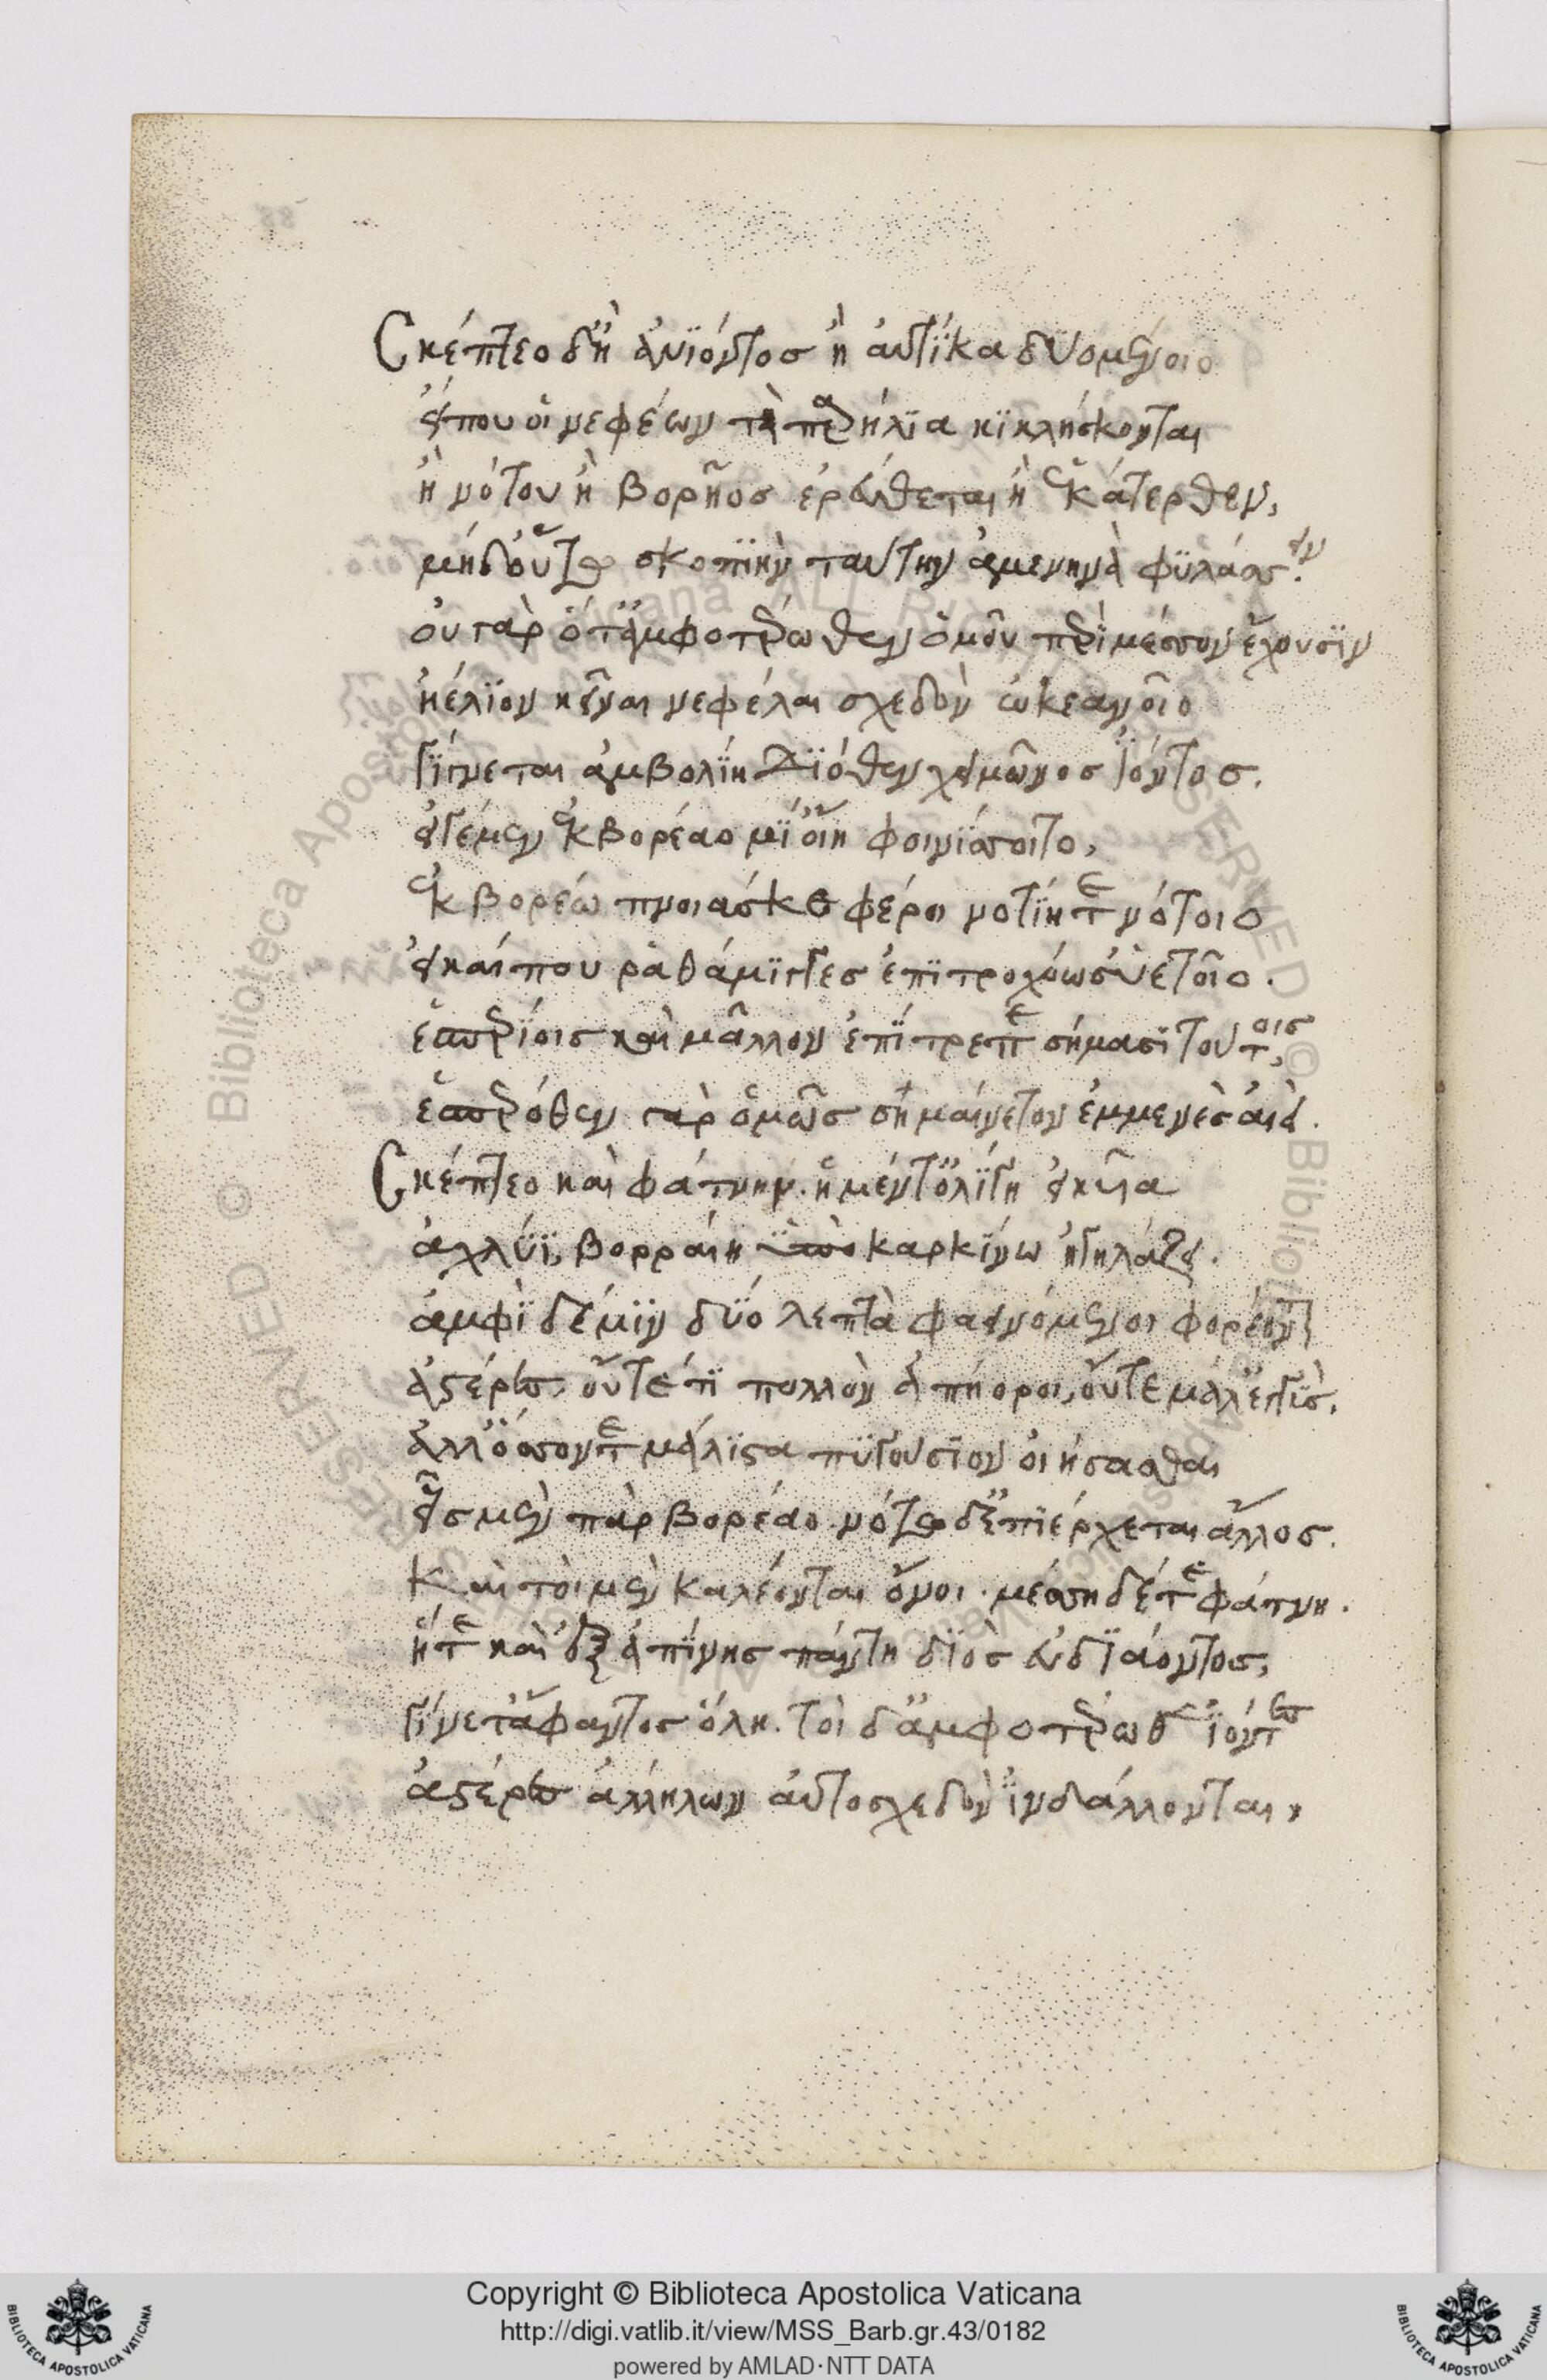 Σκέπτεο δ' ἢ ἀνϊόντοσ ἢ ἀυτΐκα δυομένοιο
εἴπου οἱ νεφέων τὰ πὰρήλϊα κϊκλήσκονται
ἢ νότου ἢ βορῆοσ ἐρεύθεται ἢ ἑκάτερθεν,
μήδ' οὕτω σκοπϊὴν ταύτην ἀμενηνὰ φϋλάσσειν.
ὀυ γὰρ ὅτ' ἀμφοτέρωθεν ὁμοῦ περὶ μέσσον ἔχουσϊν
ἠέλϊον κεῖναι νεφέλαι σχεδὸν ὠκεανοῖο
γΐγνεται ἀμβολΐη Δϊόθεν χειμῶνοσ ϊόντοσ.
εἴγε μὲν ἐκ βορέαο μΐ' οἴη φοινΐσσοιτο,
ἐκ βορέω πνοιάσ κε φέροι νοτΐη τε νότοιο
εἴ και που ῥαθάμϊγγεσ ἐπϊτροχόωσ' ὑετοῖο.
ἑσπερΐοισ καὶ μᾶλλον ἐπΐτρεπε σήμασϊ τούτοισ,
ἑσπερόθεν γὰρ ὁμῶσ σημαίνετον ἐμμενὲσ ἀιεὶ.
Σκέπτεο καὶ φάτνην. ἡ μέν τ' ὀλΐγη εἰκυῖα
ἀχλύϊ, βορραίη ὑπὸ καρκΐνω ἡγηλάζει.
ἀμφὶ δέ μϊν δύο λεπτὰ φαεινόμενοι φορέονται
ἀστέρεσ, οὔτε τι πολλὸν ἀπήοροι, οὔτε μάλ' ἐγγὺσ,
ἀλλ' ὅσσον τε μάλϊστα πϋγούσϊον οἰήσασθαι
εἷσ μὲν πὰρ βορέαο. νότω δ' ἐπϊέρχεται ἄλλοσ.
Καὶ τοὶ μὲν καλέονται ὄνοι. μέσση δέ τε φάτνη.
ἥτε καὶ ἐξαπΐνησ πάντη δϊὸσ ἐυδϊάοντοσ,
γΐνετ' ἄφαντοσ ὅλη. τοὶ δ' ἀμφοτέρωθεν ϊόντεσ
ἀστέρεσ ἀλλήλων ἀυτοσχεδὸν ϊνδάλλονται,
Copyright © Biblioteca Apostolica Vaticana
http://digi.vatlib.it/view/MSS_Barb.gr.43/0182
powered by AMLAD·NTT DATA